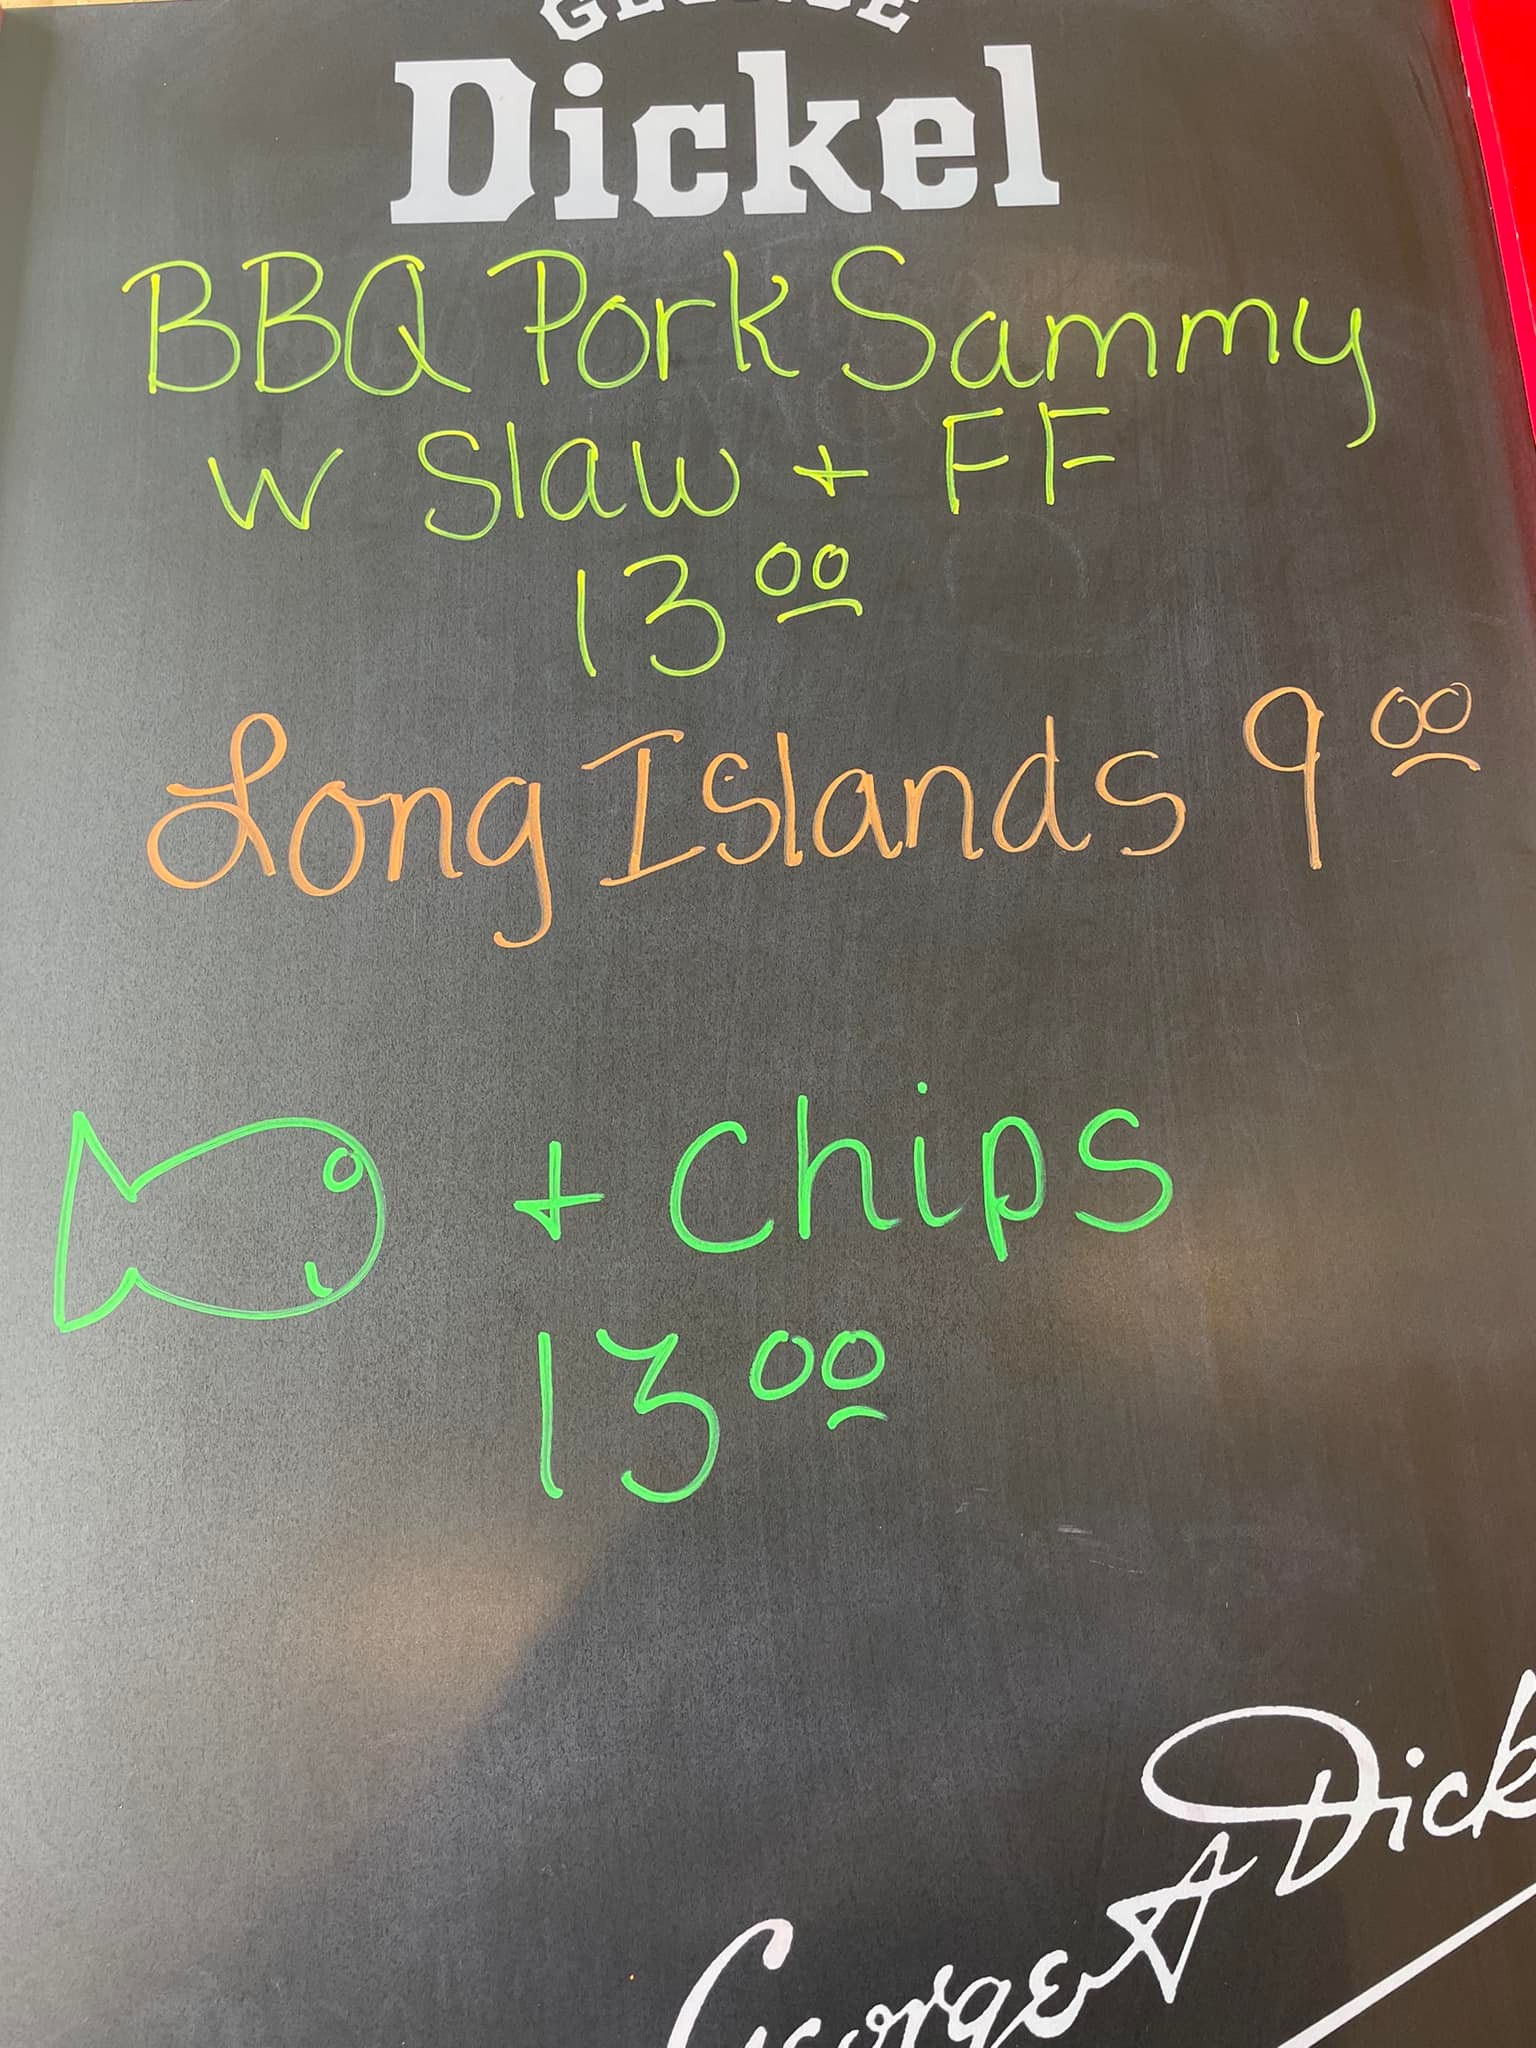 GEORGE
Dickel
BBQ Pork Sammy
w Slaw + FF
13 00
Long Islands 9 00
+ Chips
13 00
George A Dick